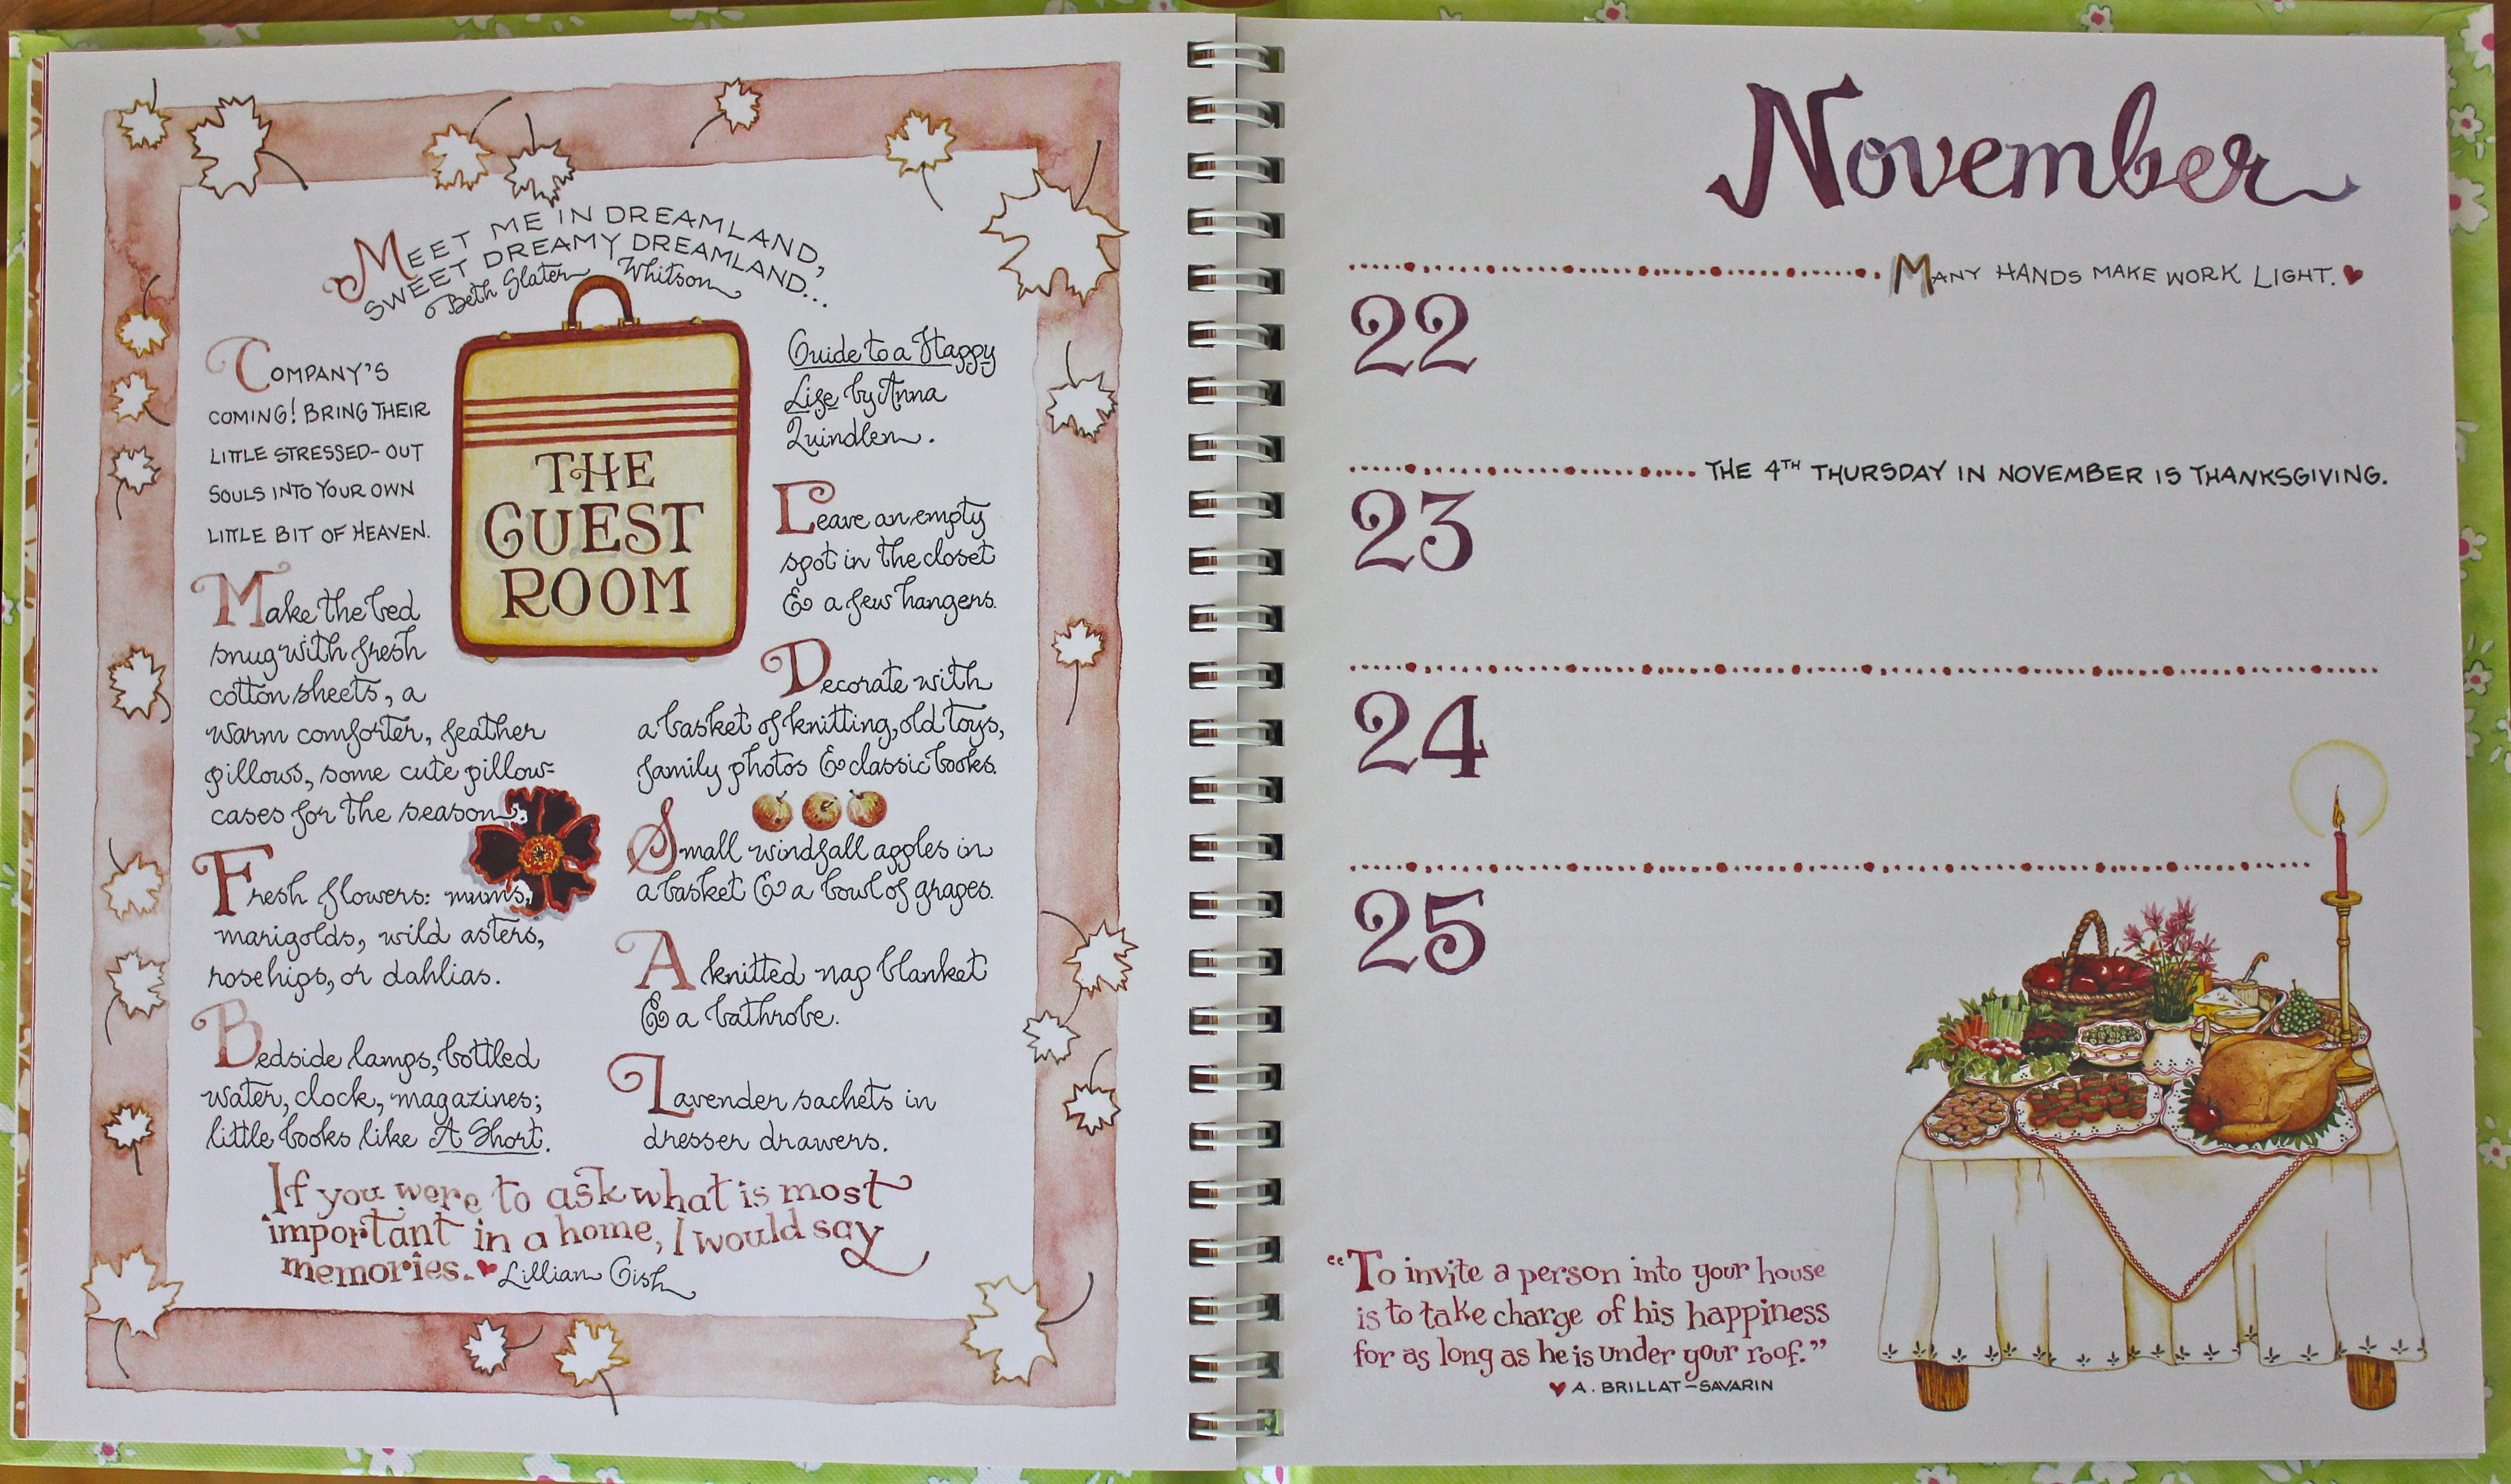 MEET ME IN DREAMLAND,
SWEET DREAMY DREAMLAND...
Beth Slater Whitson
COMPANY'S
COMING! BRING THEIR
LITTLE STRESSED-OUT
SOULS INTO YOUR OWN
LITTLE BIT OF HEAVEN.
Make the bed
snug with fresh
cotton sheets, a
warm comforter, feather
pillows, some cute pillow=
cases for the season.
Fresh flowers: mums,
marigolds, wild asters,
rosehips, or dahlias.
Bedside lamps, bottled
water, clock, magazines;
little books like A Short
THE
GUEST
ROOM
Guide to a Happy
Life by Anna
Quindlen.
Leave an empty
spot in the closet
& a few hangers.
Decorate with
a basket of knitting, old toys,
family photos & classic books.
Small windfall apples in
a basket & a bowl of grapes.
A knitted nap blanket
& a bathrobe.
Lavender sachets in
dresser drawers.
If you were to ask what is most
important in a home, I would say
memories. ♥ Lillian Gish
November
MANY HANDS MAKE WORK LIGHT. ♥
22
THE 4TH THURSDAY IN NOVEMBER IS THANKSGIVING.
23
24
25
"To invite a person into your house
is to take charge of his happiness
for as long as he is under your roof."
♥ A. BRILLAT-SAVARIN